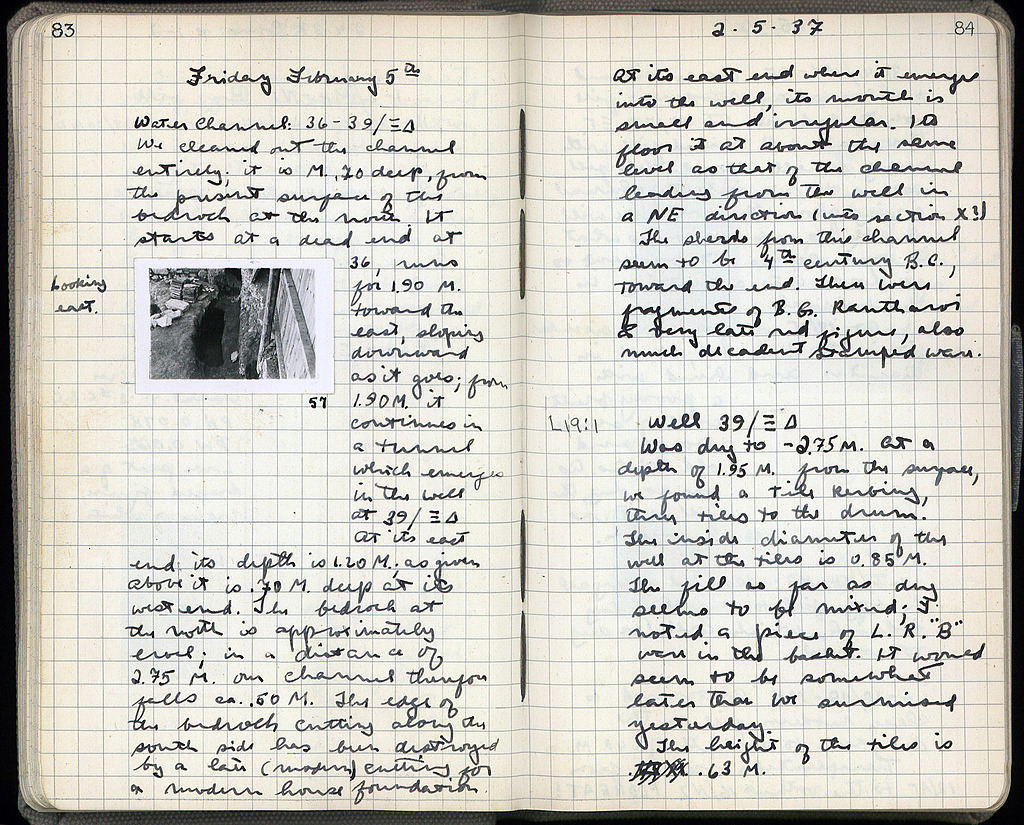 83
Friday February 5th
Water Channel: 36-39/ΞΔ
We cleaned out the channel
entirely; it is M. .70 deep, from
the present surface of the
bedrock at the north. It
starts at a dead end at
36, runs
for 1.90 M.
toward the
east, sloping
downward
as it goes; from
1.90 M. it
continues in
a tunnel
which emerges
in the well
at 39/ΞΔ
At its east
Looking
east.
57
end its depth is 1.20 M. as given
above it is .70 M. deep at its
west end. The bedrock at
the north is approximately
level; in a distance of
2.75 M. our channel therefore
falls ca. .50 M. The edge of
the bedrock cutting along the
south side has been destroyed
by a late (modern) cutting for
a modern house foundation.
2.5.37
84
At its east end where it emerges
into the well, its mouth is
small and irregular. Its
floor is at about the same
level as that of the channel
leading from the well in
a NE direction (into section X!)
The sherds from this channel
seem to be 4th century B.C.,
toward the end. There were
fragments of B.G. Kantharoi
& very late red figure, also
much decadent stamped ware.
L19:1
Well 39/ΞΔ
Was dug to -2.75 M. At a
depth of 1.95 M. from the surface,
we found a tile kerbing,
three tiles to the drum.
The inside diameter of the
well at the tiles is 0.85 M.
The fill as far as dug
seems to be mixed; I
noted a piece of L.R. "B"
ware in the basket. It would
seem to be somewhat
later than we surmised
yesterday.
The height of the tiles is
.63 M.